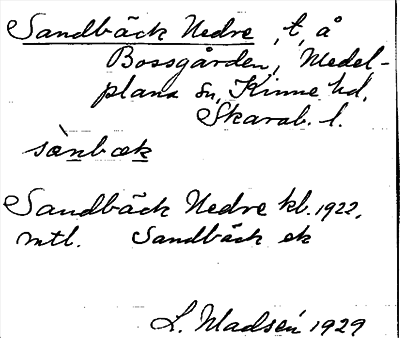 Sandbäck Nedre, t, å
Bossgården, Medel-
plana sn, Kinne hd,
Skarab. l.
sænbæk
Sandbäck Nedre kl. 1922.
mtl. Sandbäck ek
L. Madsén 1929